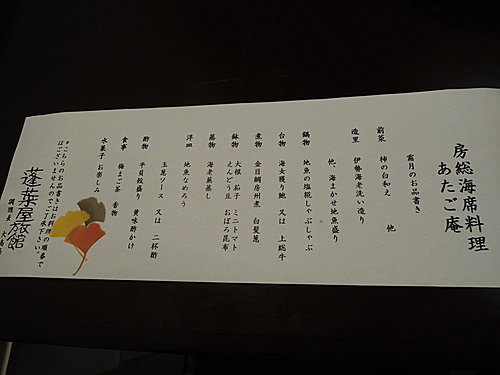 房総海席料理
あたご庵
霜月のお品書き
前菜 柿の白和え 他
造里 伊勢海老洗い造り
他、海まかせ地魚盛り
鍋物 地魚の塩糀しゃぶしゃぶ
台物 海女獲り鮑 又は 上総牛
煮物 金目鯛房州煮 白髪葱
鉢物 大根 茄子 ミニトマト
えんどう豆 おぼろ昆布
蒸物 海老飯蒸し
洋皿 地魚なめろう
玉葱ソース 又は 二杯酢
酢物 平貝殻盛り 黄味酢かけ
食事 梅まご茶 香物
水菓子 お楽しみ
*こちらのお品書きはお料理の順番で
はございませんのでご了承下さい。
蓬莱屋旅館
調理長 大